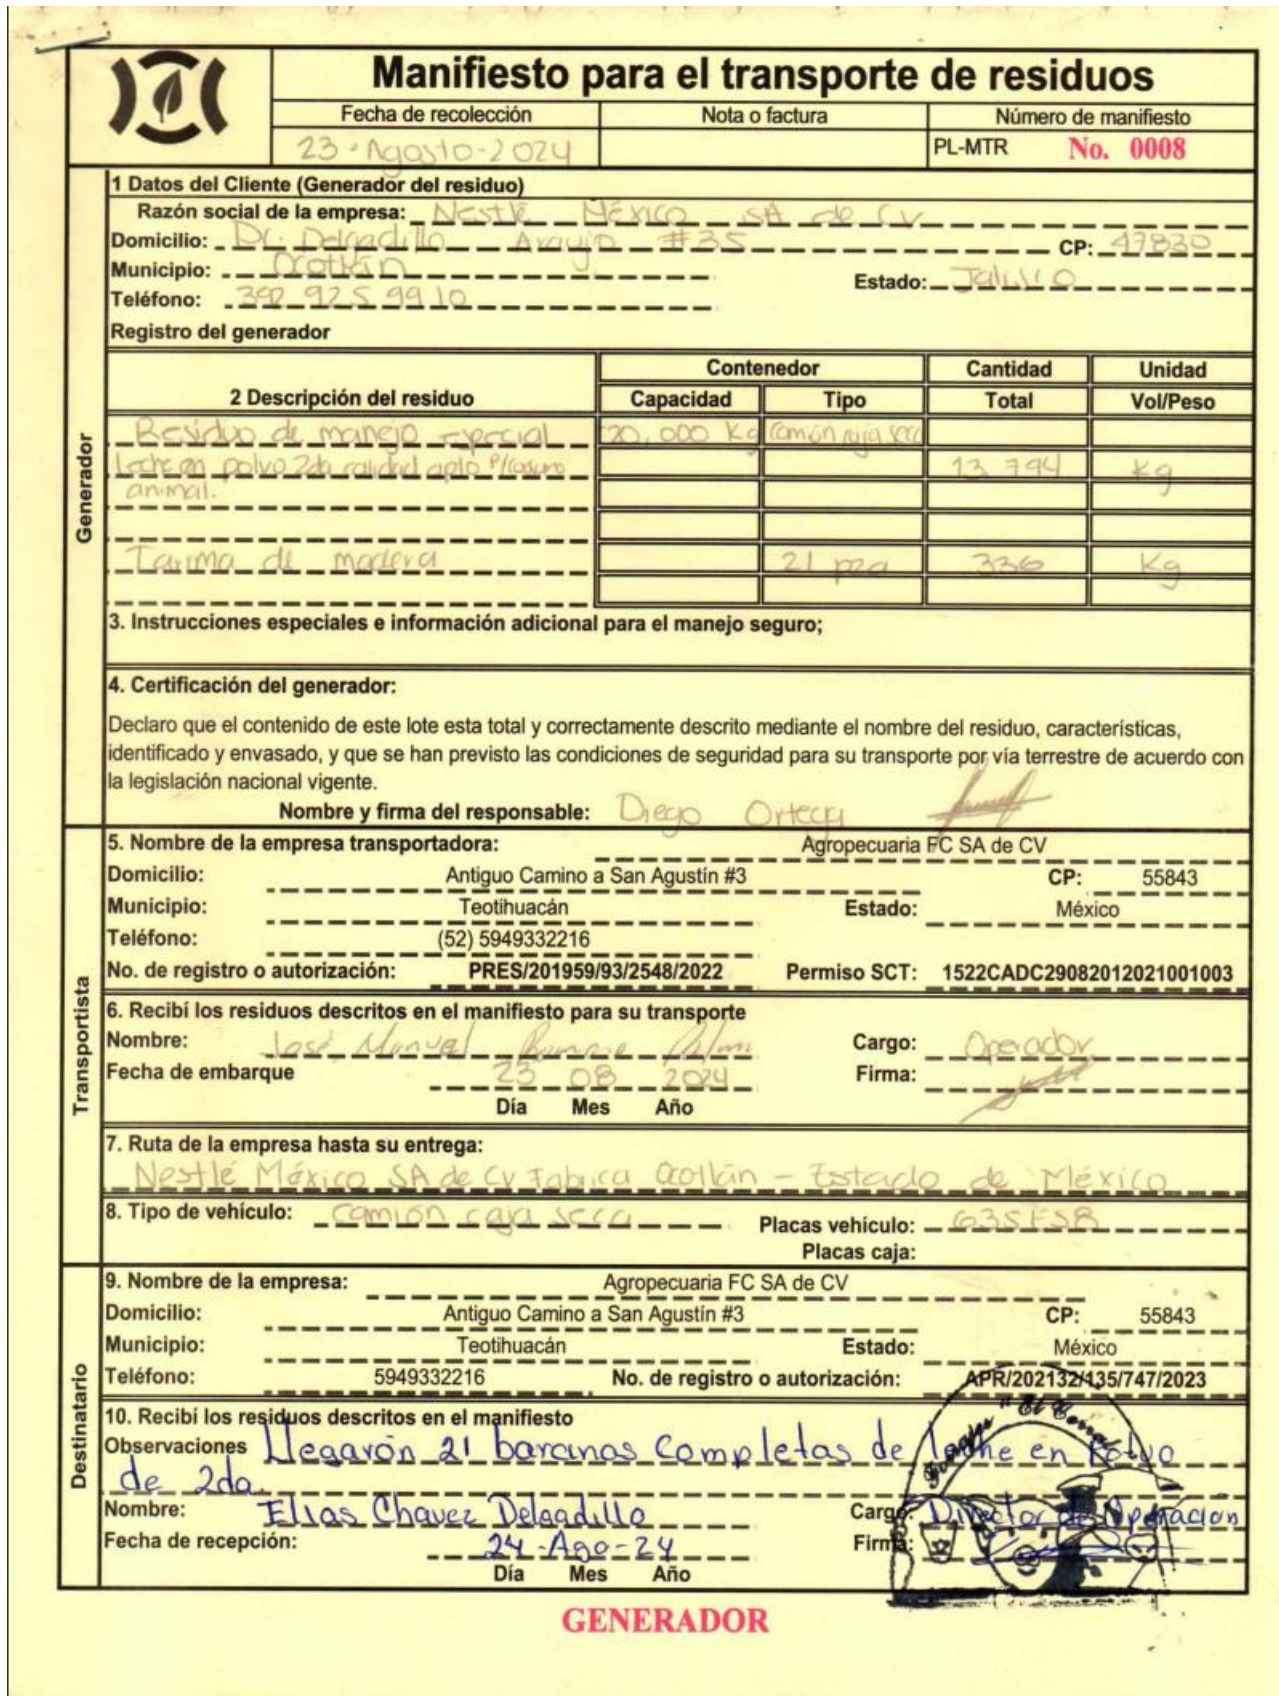 Manifiesto para el transporte de residuos
Fecha de recolección Nota o factura Número de manifiesto
23-Agosto-2024 PL-MTR No. 0008
1 Datos del Cliente (Generador del residuo)
Razón social de la empresa: Nestlé México SA de CV
Domicilio: Dr. Delgadillo Araujo #35 CP: 47830
Municipio: Ocotlán
Estado: Jalisco
Teléfono: 392 925 9910
Registro del generador
Contenedor Cantidad Unidad
2 Descripción del residuo Capacidad Tipo Total Vol/Peso
Residuo de manejo especial 20,000 Kg Camión caja seca
Leche en polvo 2da calidad apto P/ 13,794 Kg
animal.
Tarima de madera 21 pza 336 Kg
3. Instrucciones especiales e información adicional para el manejo seguro;
4. Certificación del generador:
Declaro que el contenido de este lote esta total y correctamente descrito mediante el nombre del residuo, características,
identificado y envasado, y que se han previsto las condiciones de seguridad para su transporte por vía terrestre de acuerdo con
la legislación nacional vigente.
Nombre y firma del responsable: Diego Ortega
Generador
5. Nombre de la empresa transportadora: Agropecuaria FC SA de CV
Domicilio: Antiguo Camino a San Agustín #3 CP: 55843
Municipio: Teotihuacán Estado: México
Teléfono: (52) 5949332216
No. de registro o autorización: PRES/201959/93/2548/2022 Permiso SCT: 1522CADC29082012021001003
6. Recibí los residuos descritos en el manifiesto para su transporte
Nombre: José Manuel Cargo: Operador
Fecha de embarque 23 08 2024 Firma:
Día Mes Año
7. Ruta de la empresa hasta su entrega:
Nestlé México SA de CV Fabrica Ocotlán - Estado de México
8. Tipo de vehículo: Camión caja seca Placas vehículo: 635ESB
Placas caja:
Transportista
9. Nombre de la empresa: Agropecuaria FC SA de CV
Domicilio: Antiguo Camino a San Agustín #3 CP: 55843
Municipio: Teotihuacán Estado: México
Teléfono: 5949332216 No. de registro o autorización: APR/202132/135/747/2023
10. Recibí los residuos descritos en el manifiesto
Observaciones Llegarón 21 barcinas Completas de leche en Polvo
de 2da.
Nombre: Elias Chavez Delgadillo Cargo: Director de Operación
Fecha de recepción: 24-Ago-24 Firma:
Día Mes Año
Destinatario
Forrajes "El Corral
GENERADOR